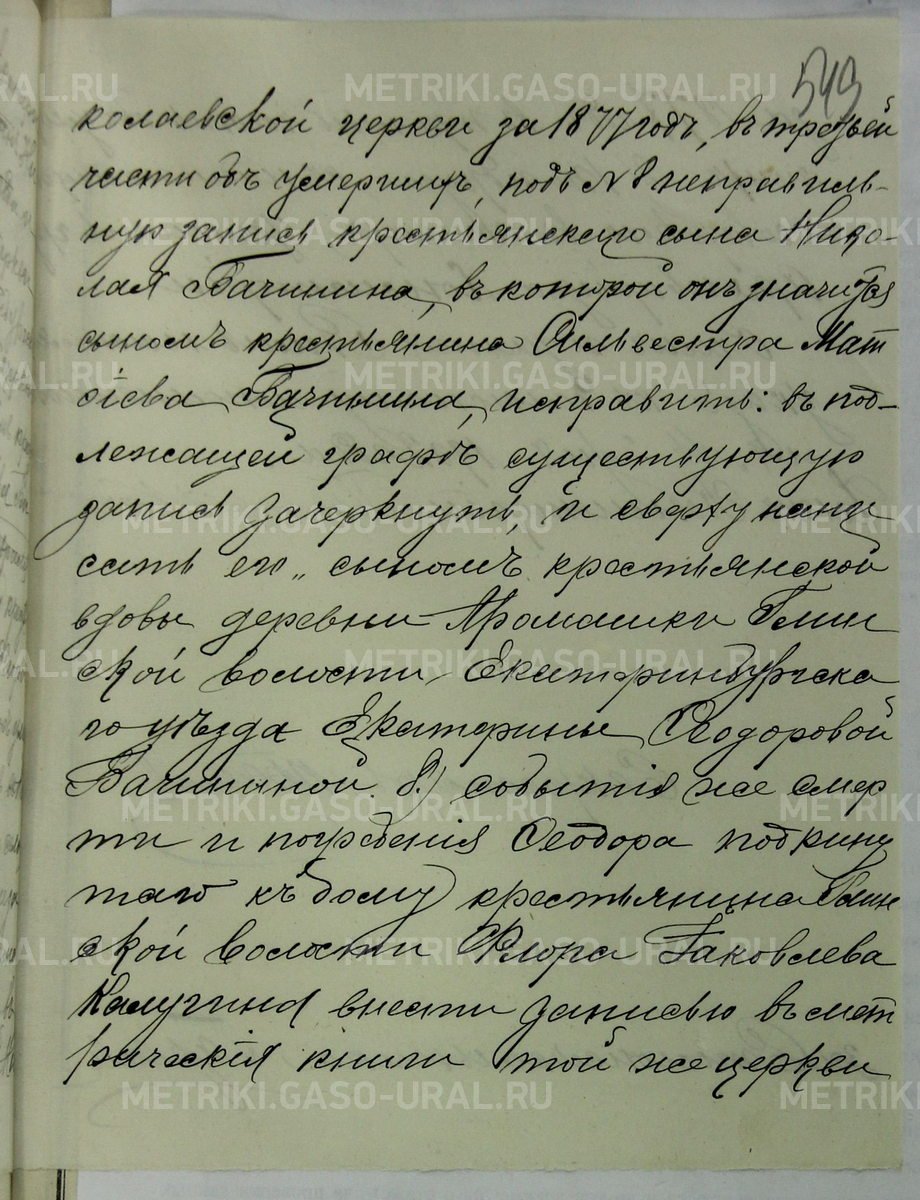 543
колаевской церкви за 1877 годъ, въ третьей
части объ умершихъ, подъ № 8 неправиль-
ную запись крестьянскаго сына Нико-
лая Бачинина, въ которой онъ значится
сыномъ крестьянина Сильвестра Мат
ѳіева Бачинина, исправить: въ под-
лежащей графѣ существующую
запись зачеркнуть, и сверху напи
сать его „сыномъ крестьянской
вдовы деревни Ромашки Глин
ской волости, Екатеринбургска
го уѣзда Екатерины Ѳеодоровой
Бачининой. 8.) событія же смер
ти и погребенія Ѳеодора подкину
таго къ дому крестьянина Глин
ской волости Флора Іаковлева
Калугина внести записью въ мет
рическія книги той же церкви
METRIKI.GASO-URAL.RU